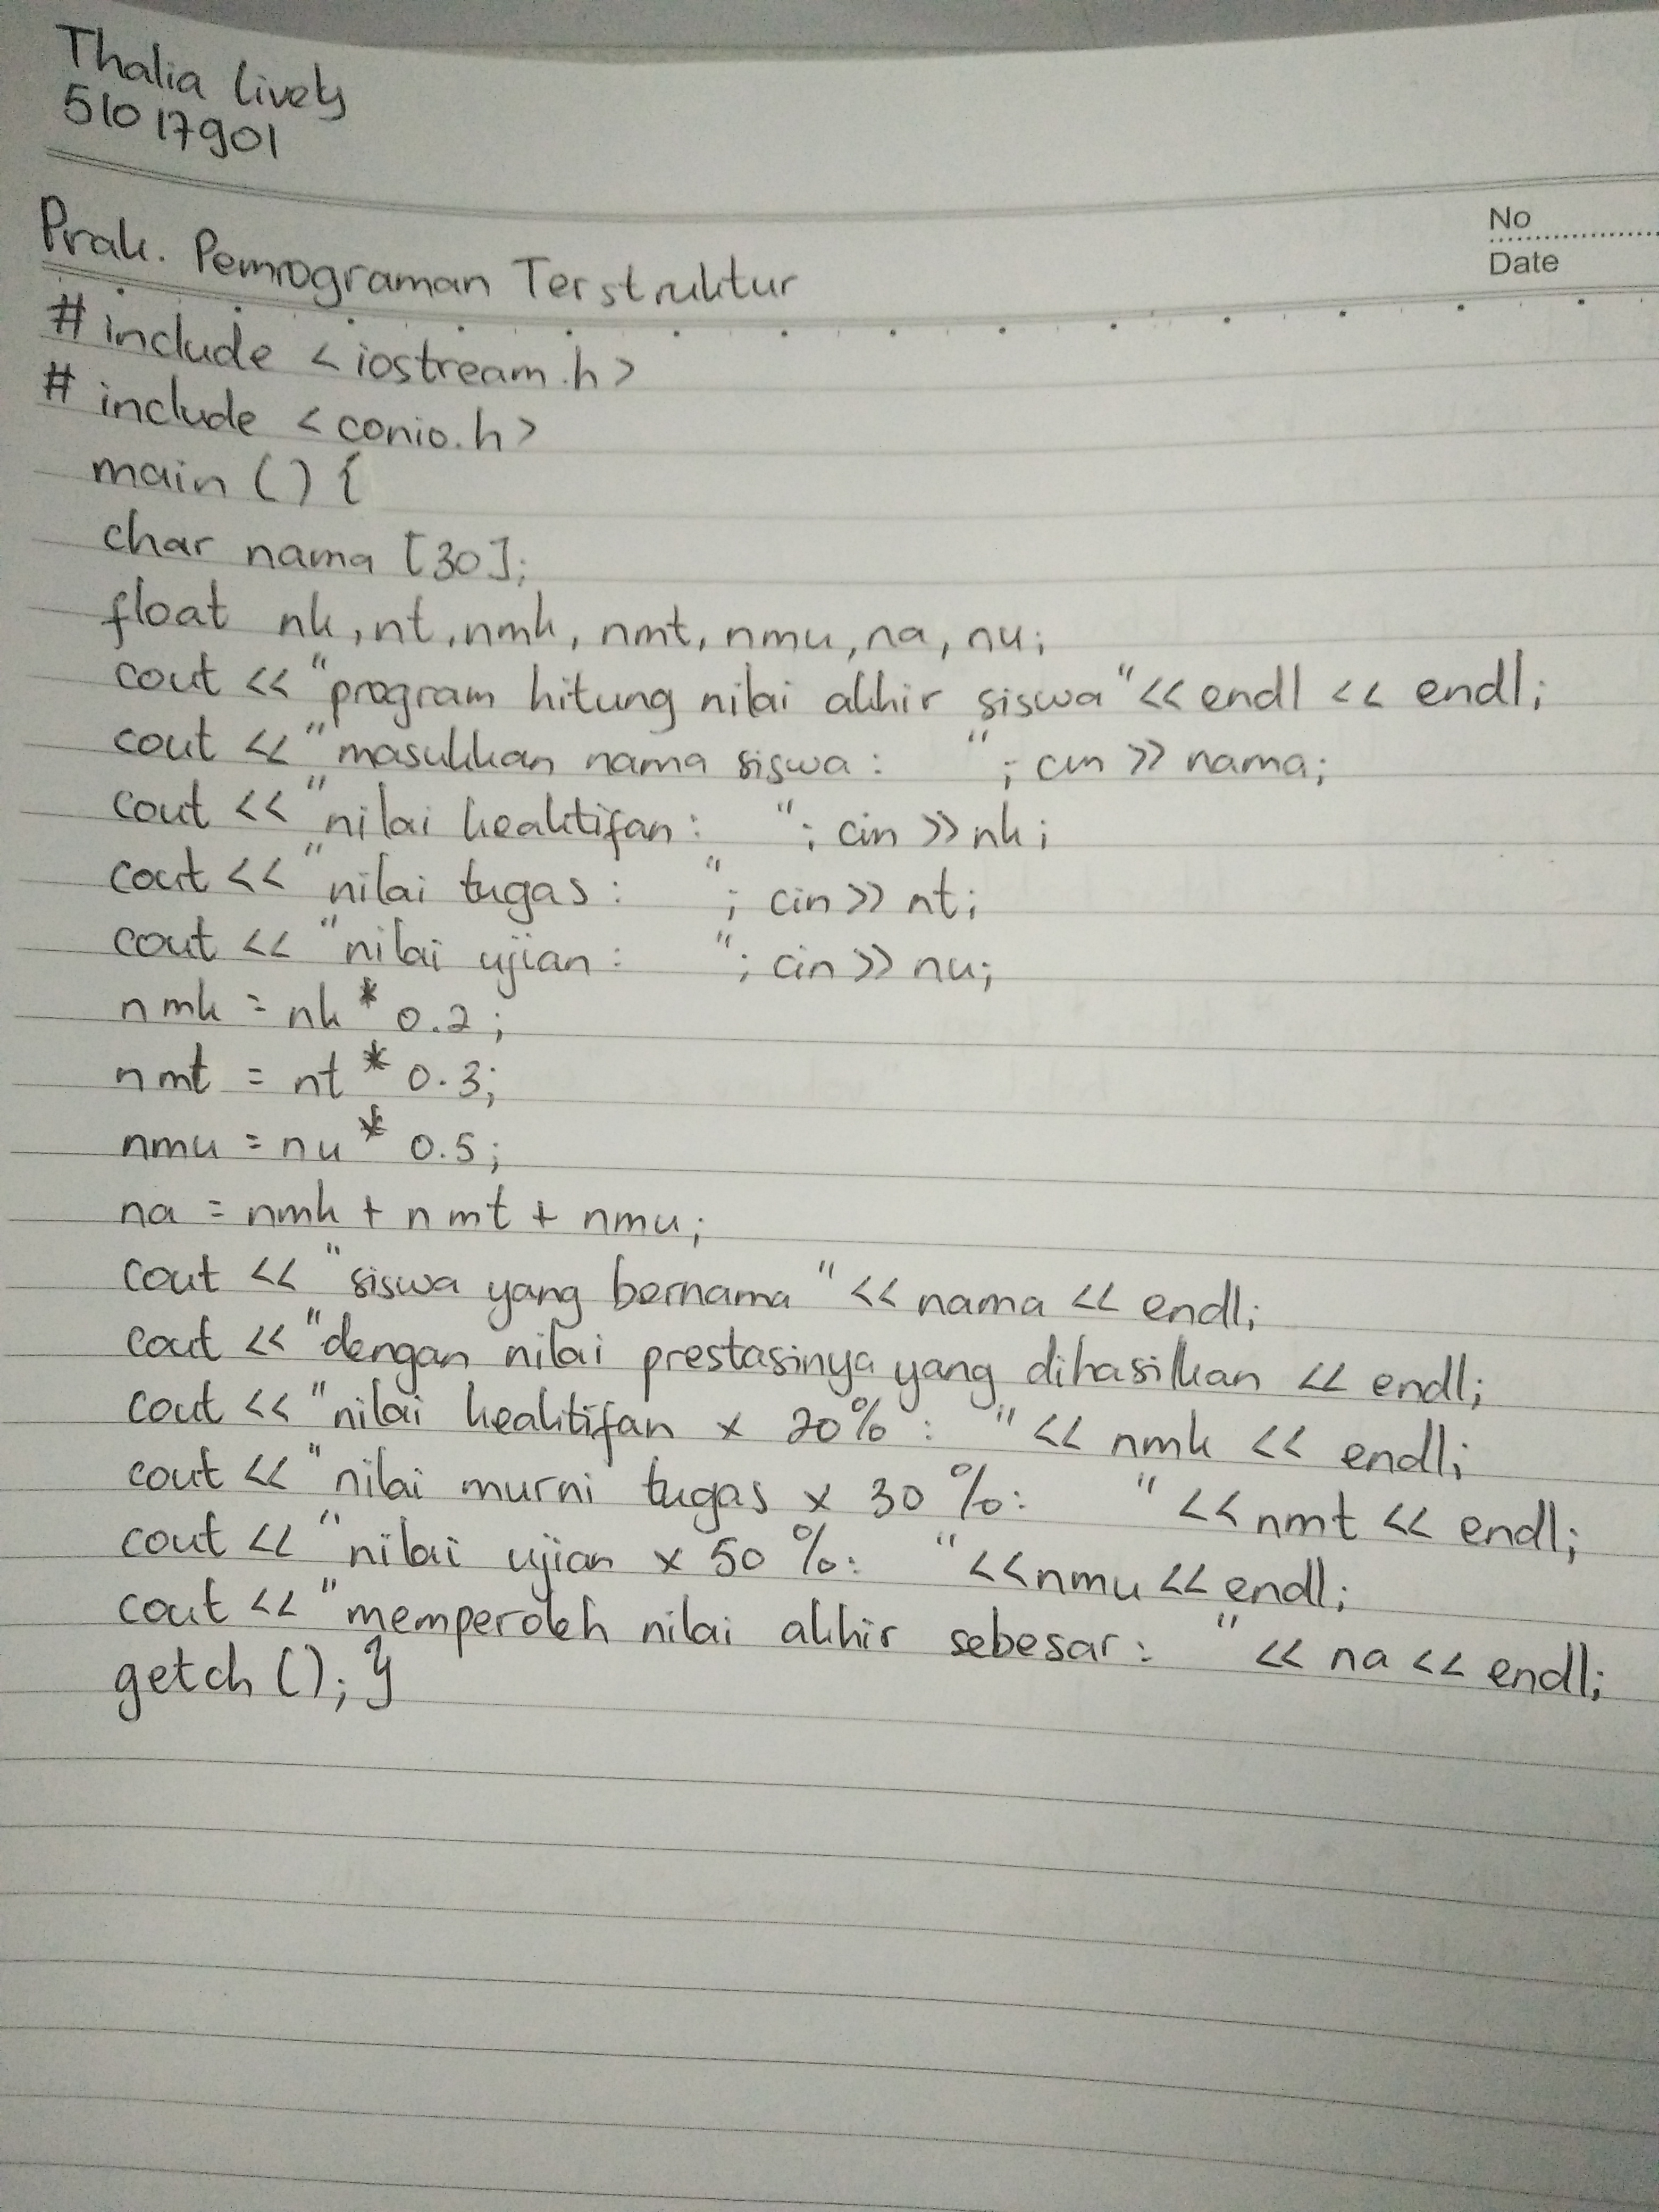 Thalia Lively
51017901
No
Date
Prak. Pemrograman Terstruktur
# include <iostream.h>
# include <conio.h>
main () {
char nama [30];
float nk, nt, nmk, nmt, nmu, na, nu;
cout << "program hitung nilai akhir siswa" << endl << endl;
cout << "masukkan nama siswa : "; cin >> nama;
cout << "nilai keaktifan : "; cin >> nk;
cout << "nilai tugas : "; cin >> nt;
cout << "nilai ujian : "; cin >> nu;
nmk = nk * 0.2;
nmt = nt * 0.3;
nmu = nu * 0.5;
na = nmk + nmt + nmu;
cout << "siswa yang bernama " << nama << endl;
cout << "dengan nilai prestasinya yang dihasilkan << endl;
cout << "nilai keaktifan x 20% : " << nmk << endl;
cout << "nilai murni tugas x 30 %: " << nmt << endl;
cout << "nilai ujian x 50 %: " << nmu << endl;
cout << "memperoleh nilai akhir sebesar : " << na << endl;
getch (); }